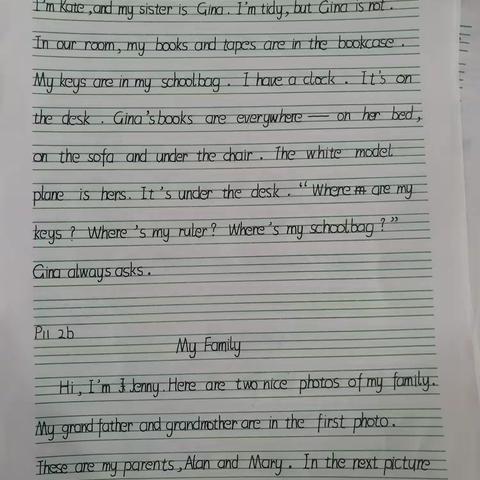 I'm Kate, and my sister is Gina. I'm tidy, but Gina is not.
In our room, my books and tapes are in the bookcase.
My keys are in my schoolbag. I have a clock. It's on
the desk. Gina's books are everywhere — on her bed,
on the sofa and under the chair. The white model
plane is hers. It's under the desk. "Where are my
keys? Where's my ruler? Where's my schoolbag?"
Gina always asks.
P11 2b
My Family
Hi, I'm Jenny. Here are two nice photos of my family.
My grandfather and grandmother are in the first photo.
These are my parents, Alan and Mary. In the next picture